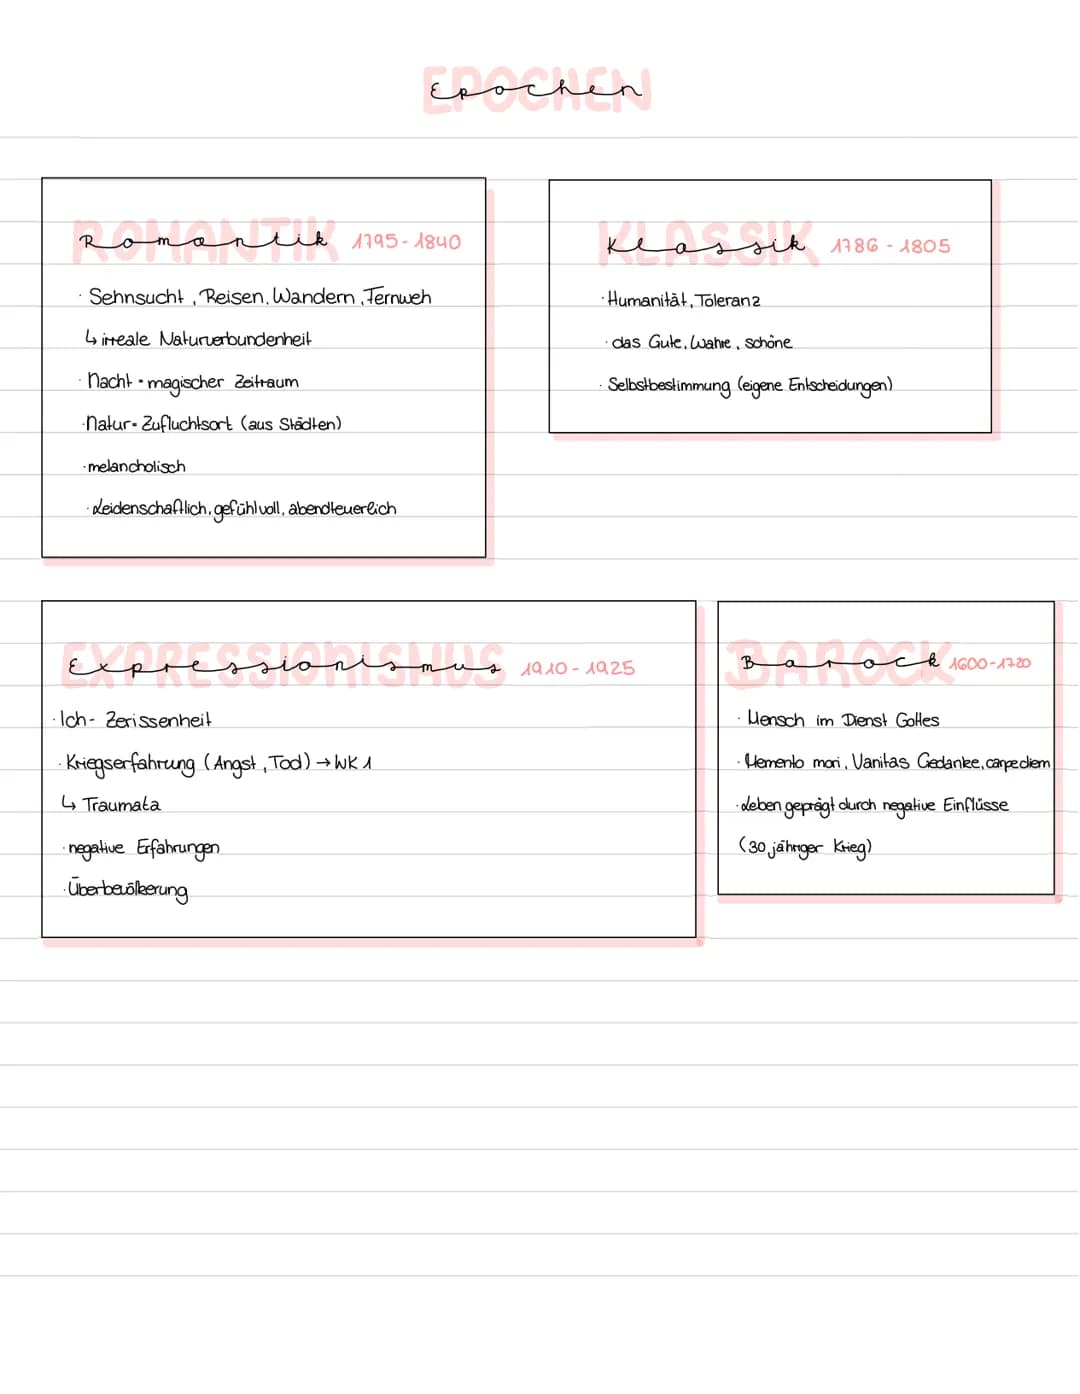 Epochen
Romantik 1795-1840
· Sehnsucht, Reisen, Wandern, Fernweh
↳ irreale Naturverbundenheit
· Nacht = magischer Zeitraum
· Natur = Zufluchtsort (aus Städten)
· melancholisch
· Leidenschaftlich, gefühlvoll, abendteuerlich
Klassik 1786 - 1805
· Humanität, Toleranz
· das Gute, Wahre, schöne
· Selbstbestimmung (eigene Entscheidungen)
Expressionismus 1910-1925
· Ich- Zerissenheit
· Kriegserfahrung (Angst, Tod) → WK 1
↳ Traumata
· negative Erfahrungen
· Überbevölkerung
Barock 1600-1720
· Mensch im Dienst Gottes
· Memento mori, Vanitas Gedanke, carpe diem
· Leben geprägt durch negative Einflüsse
(30 jähriger Krieg)